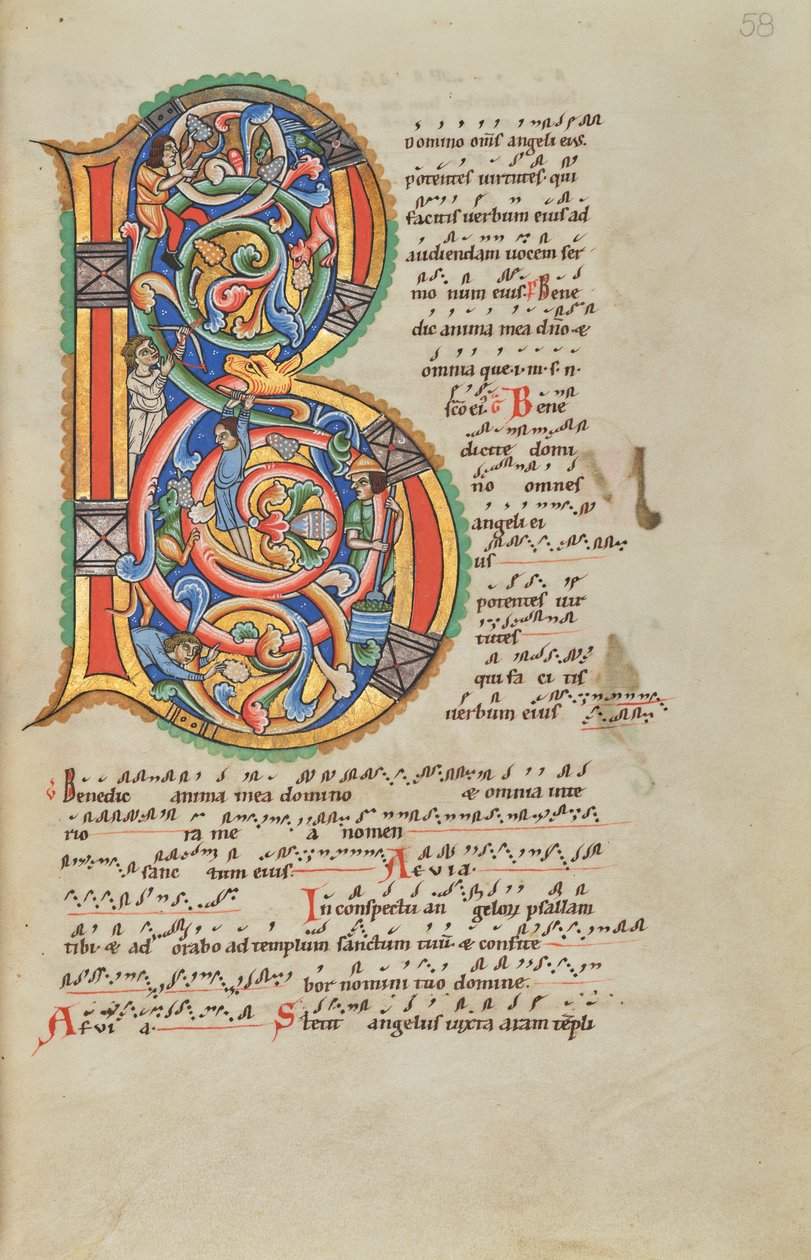 58
B
Domino om̄s angeli eius.
potentes uirtutes· qui
facitis uerbum eius ad
audiendam uocem ser
mo num eius. p̄ Bene
dic anima mea dn̄o ⁊
omnia que·i·m·s·n·
sc̄o ei᷒ Ḡ Bene
dicite domi
no omnes
angeli ei
us
potentes uir
tutes
qui fa ci tis
uerbum eius
Benedic anima mea domino ⁊ omnia inte
rio ra me a nomen
sanc tum eius. Aeuia.
In conspectu an geloꝝ psallam
tibi ⁊ ad orabo ad templum sanctum tuū ⁊ confite
bor nomini tuo domine.
Aeui a. Stetit angelus iuxta aram tēpli